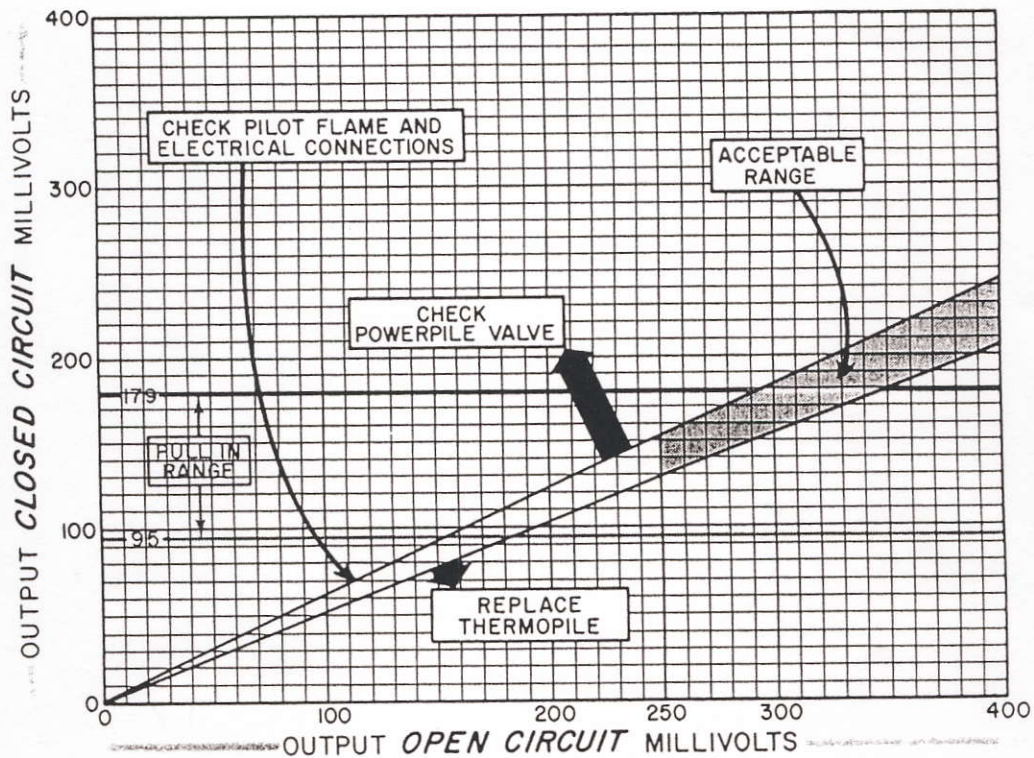 400
300
200
100
0
OUTPUT CLOSED CIRCUIT MILLIVOLTS
CHECK PILOT FLAME AND
ELECTRICAL CONNECTIONS
ACCEPTABLE
RANGE
CHECK
POWERPILE VALVE
179
PULL IN
RANGE
95
REPLACE
THERMOPILE
0
100
200
250
300
400
OUTPUT OPEN CIRCUIT MILLIVOLTS